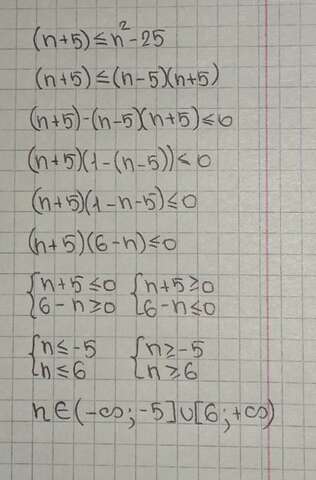 (n+5) ≤ n² - 25
(n+5) ≤ (n-5)(n+5)
(n+5) - (n-5)(n+5) ≤ 0
(n+5)(1-(n-5)) ≤ 0
(n+5)(1-n-5) ≤ 0
(n+5)(6-n) ≤ 0
{n+5 ≤ 0 {n+5 ≥ 0
{6-n ≥ 0 {6-n ≤ 0
{n ≤ -5 {n ≥ -5
{n ≤ 6 {n ≥ 6
n ∈ (-∞; -5] ∪ [6; +∞)